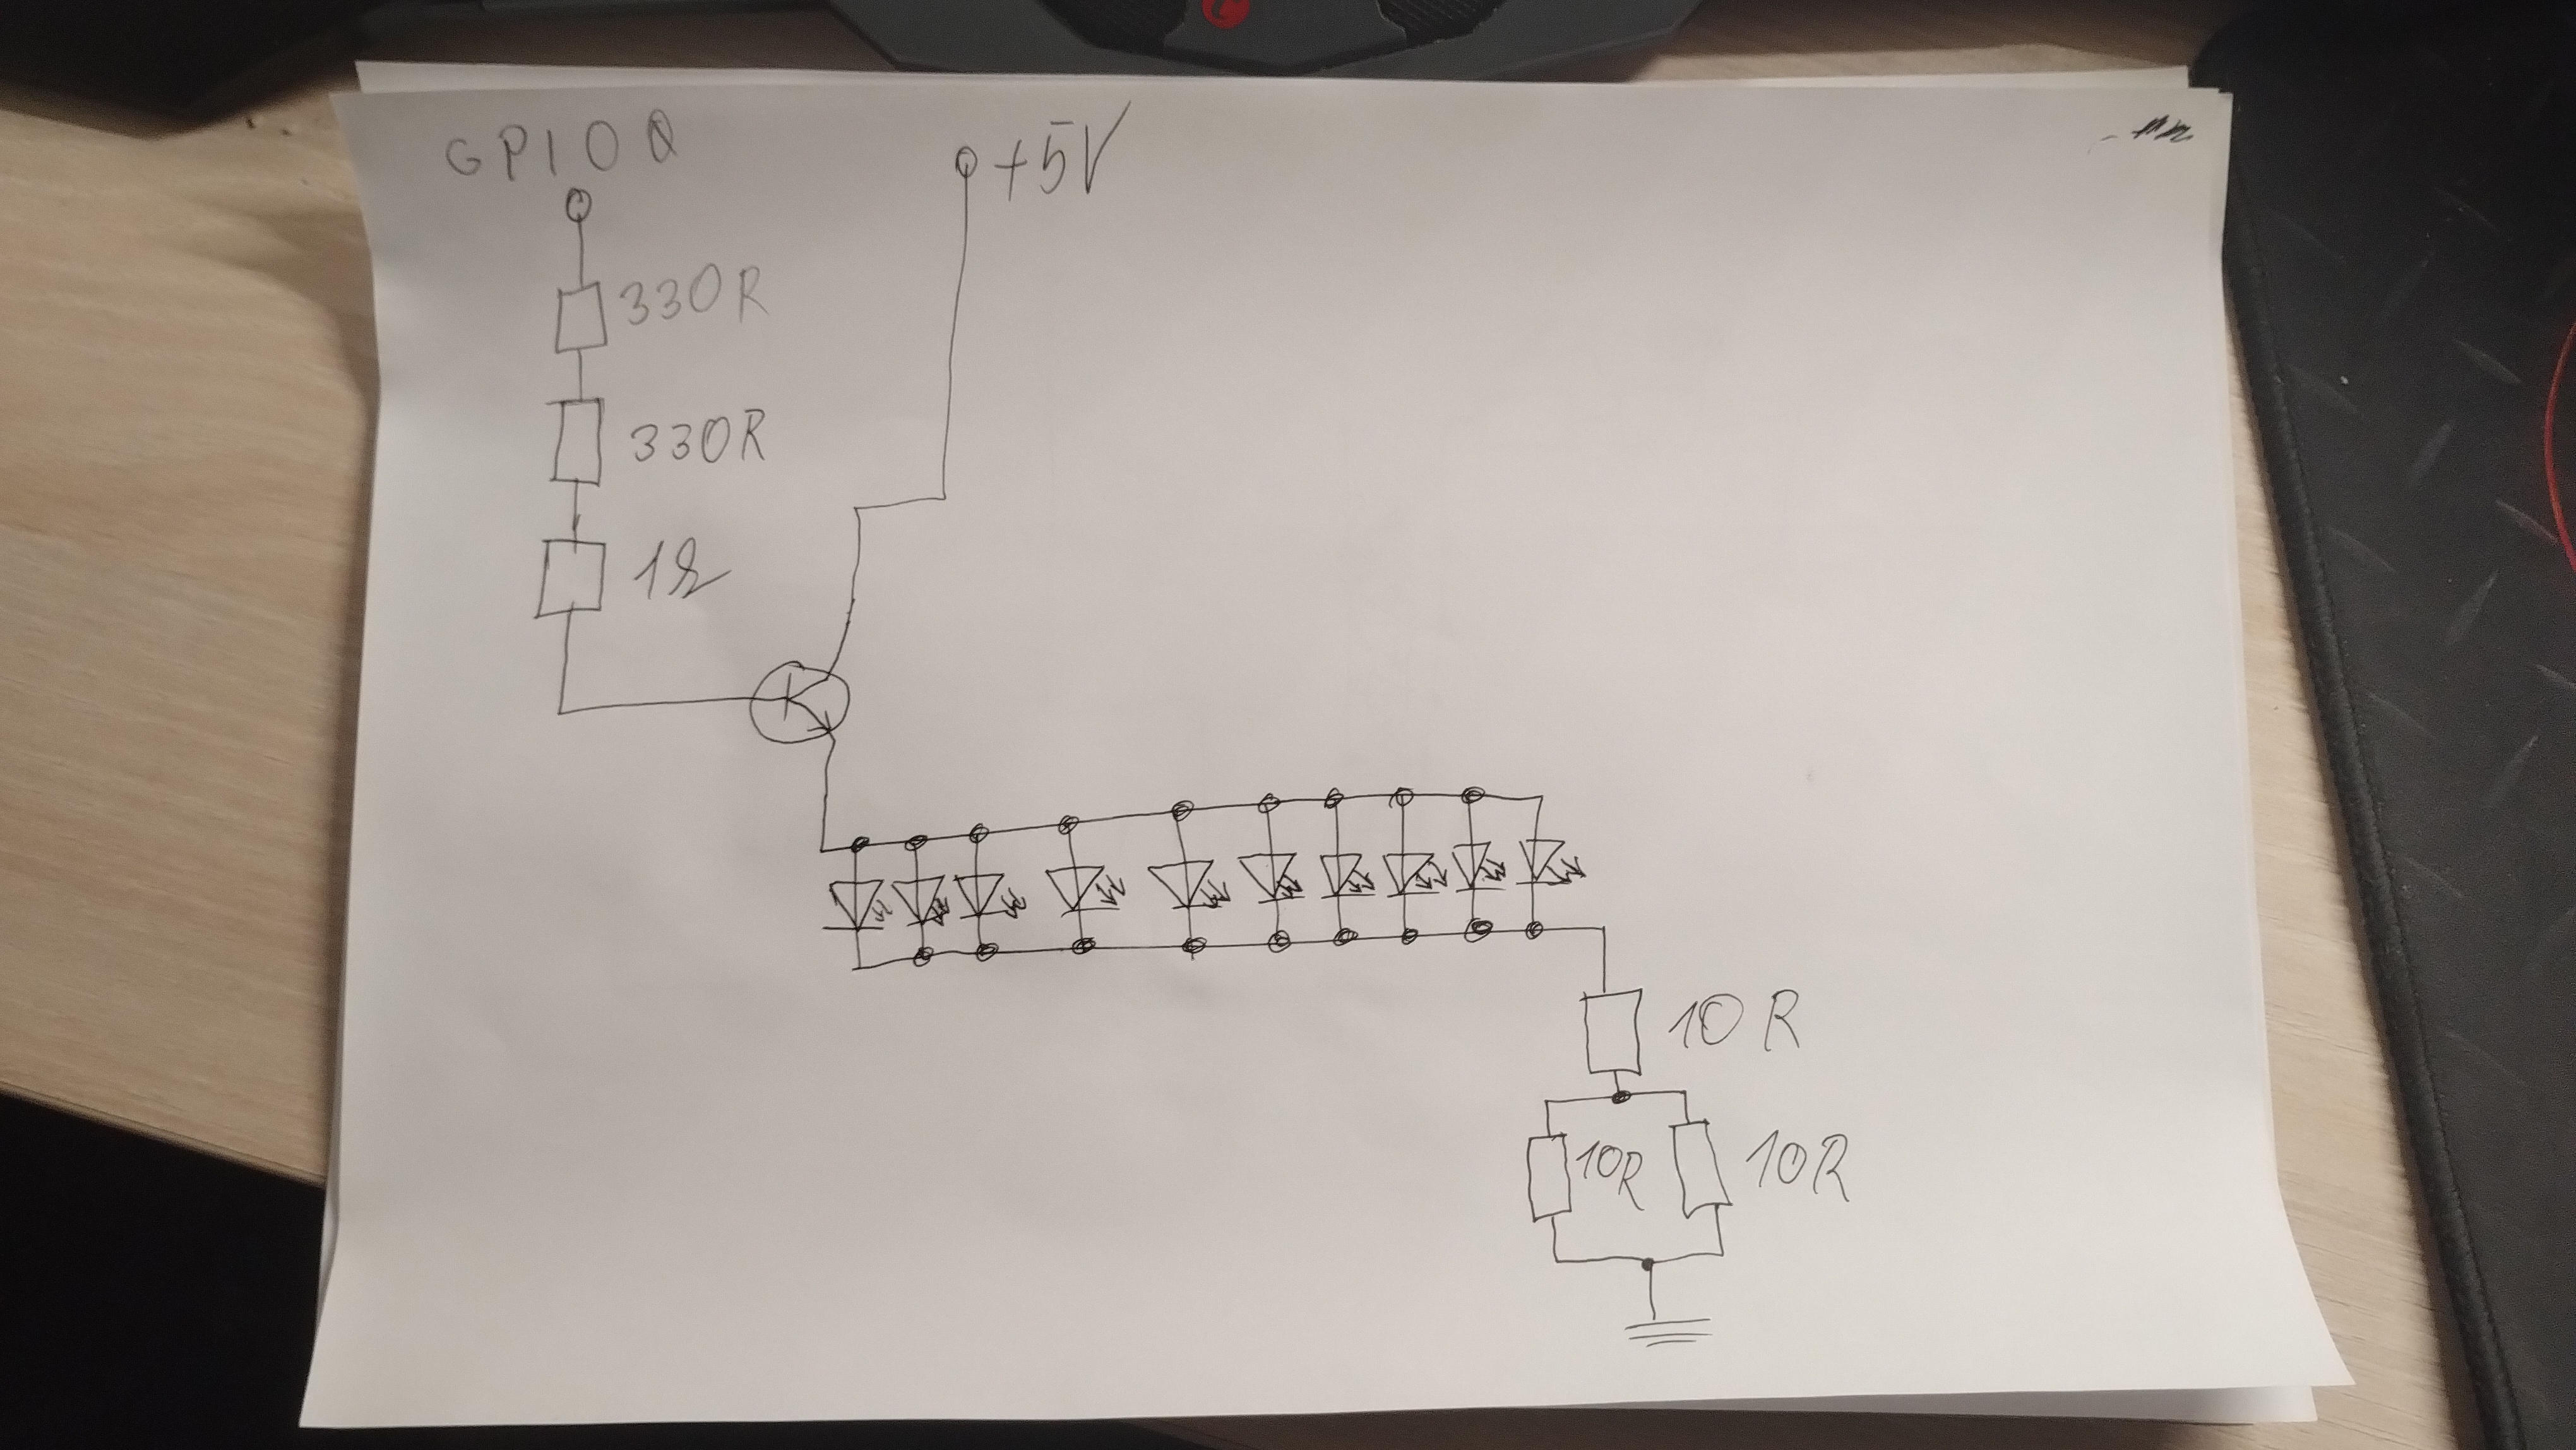 GPIO0
+5V
330R
330R
10R
10R
10R